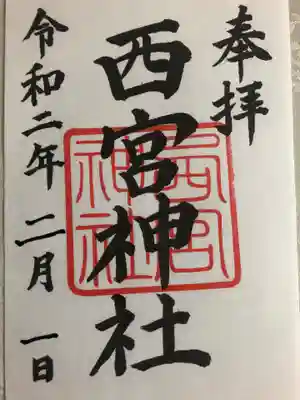 奉拝
西宮神社
西宮神社
令和二年 二月 一日